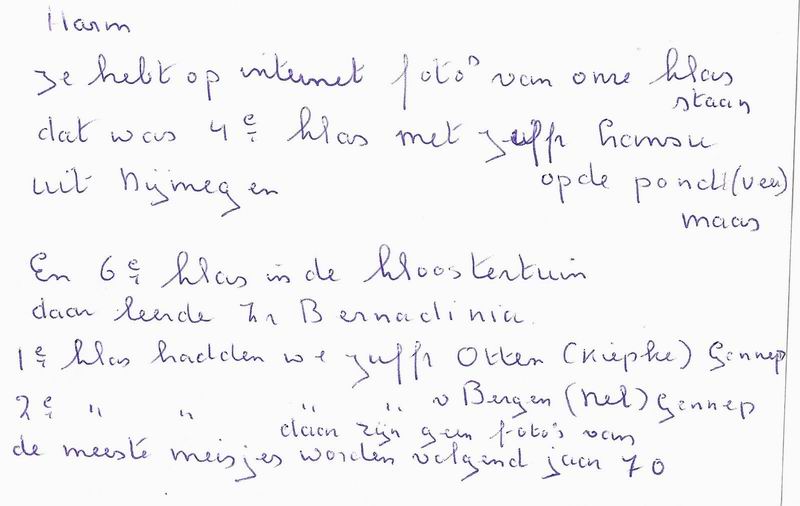 Harm
Je hebt op internet foto's van onze klas
staan
dat was 4e klas met juffr Hansse
uit Nijmegen
op de pond (veer)
maas
En 6e klas in de kloostertuin
daar leerde Zr Bernadinia.
1e klas hadden we juffr Otten (Kiepke) Gennep
2e " " " " v Bergen (Nel) Gennep
daar zijn geen foto's van
de meeste meisjes worden volgend jaar 70